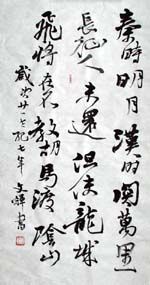 秦時明月漢時關萬里
長征人未還但使龍城
飛將在不教胡馬渡陰山
歲次廿一世紀七年文輝書